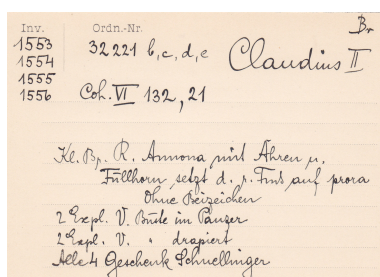 Br
Inv. Ordn.-Nr.
1553 32221 b, c, d, e Claudius II
1554
1555
1556 Coh. VI 132, 21
Kl. Br. R. Annona mit Ähren u.
Füllhorn, setzt d. r. Fuß auf prora
Ohne Beizeichen
2 Expl. V. Büste im Panzer
2 Expl. V. " drapiert
Alle 4 Geschenk Schnellinger